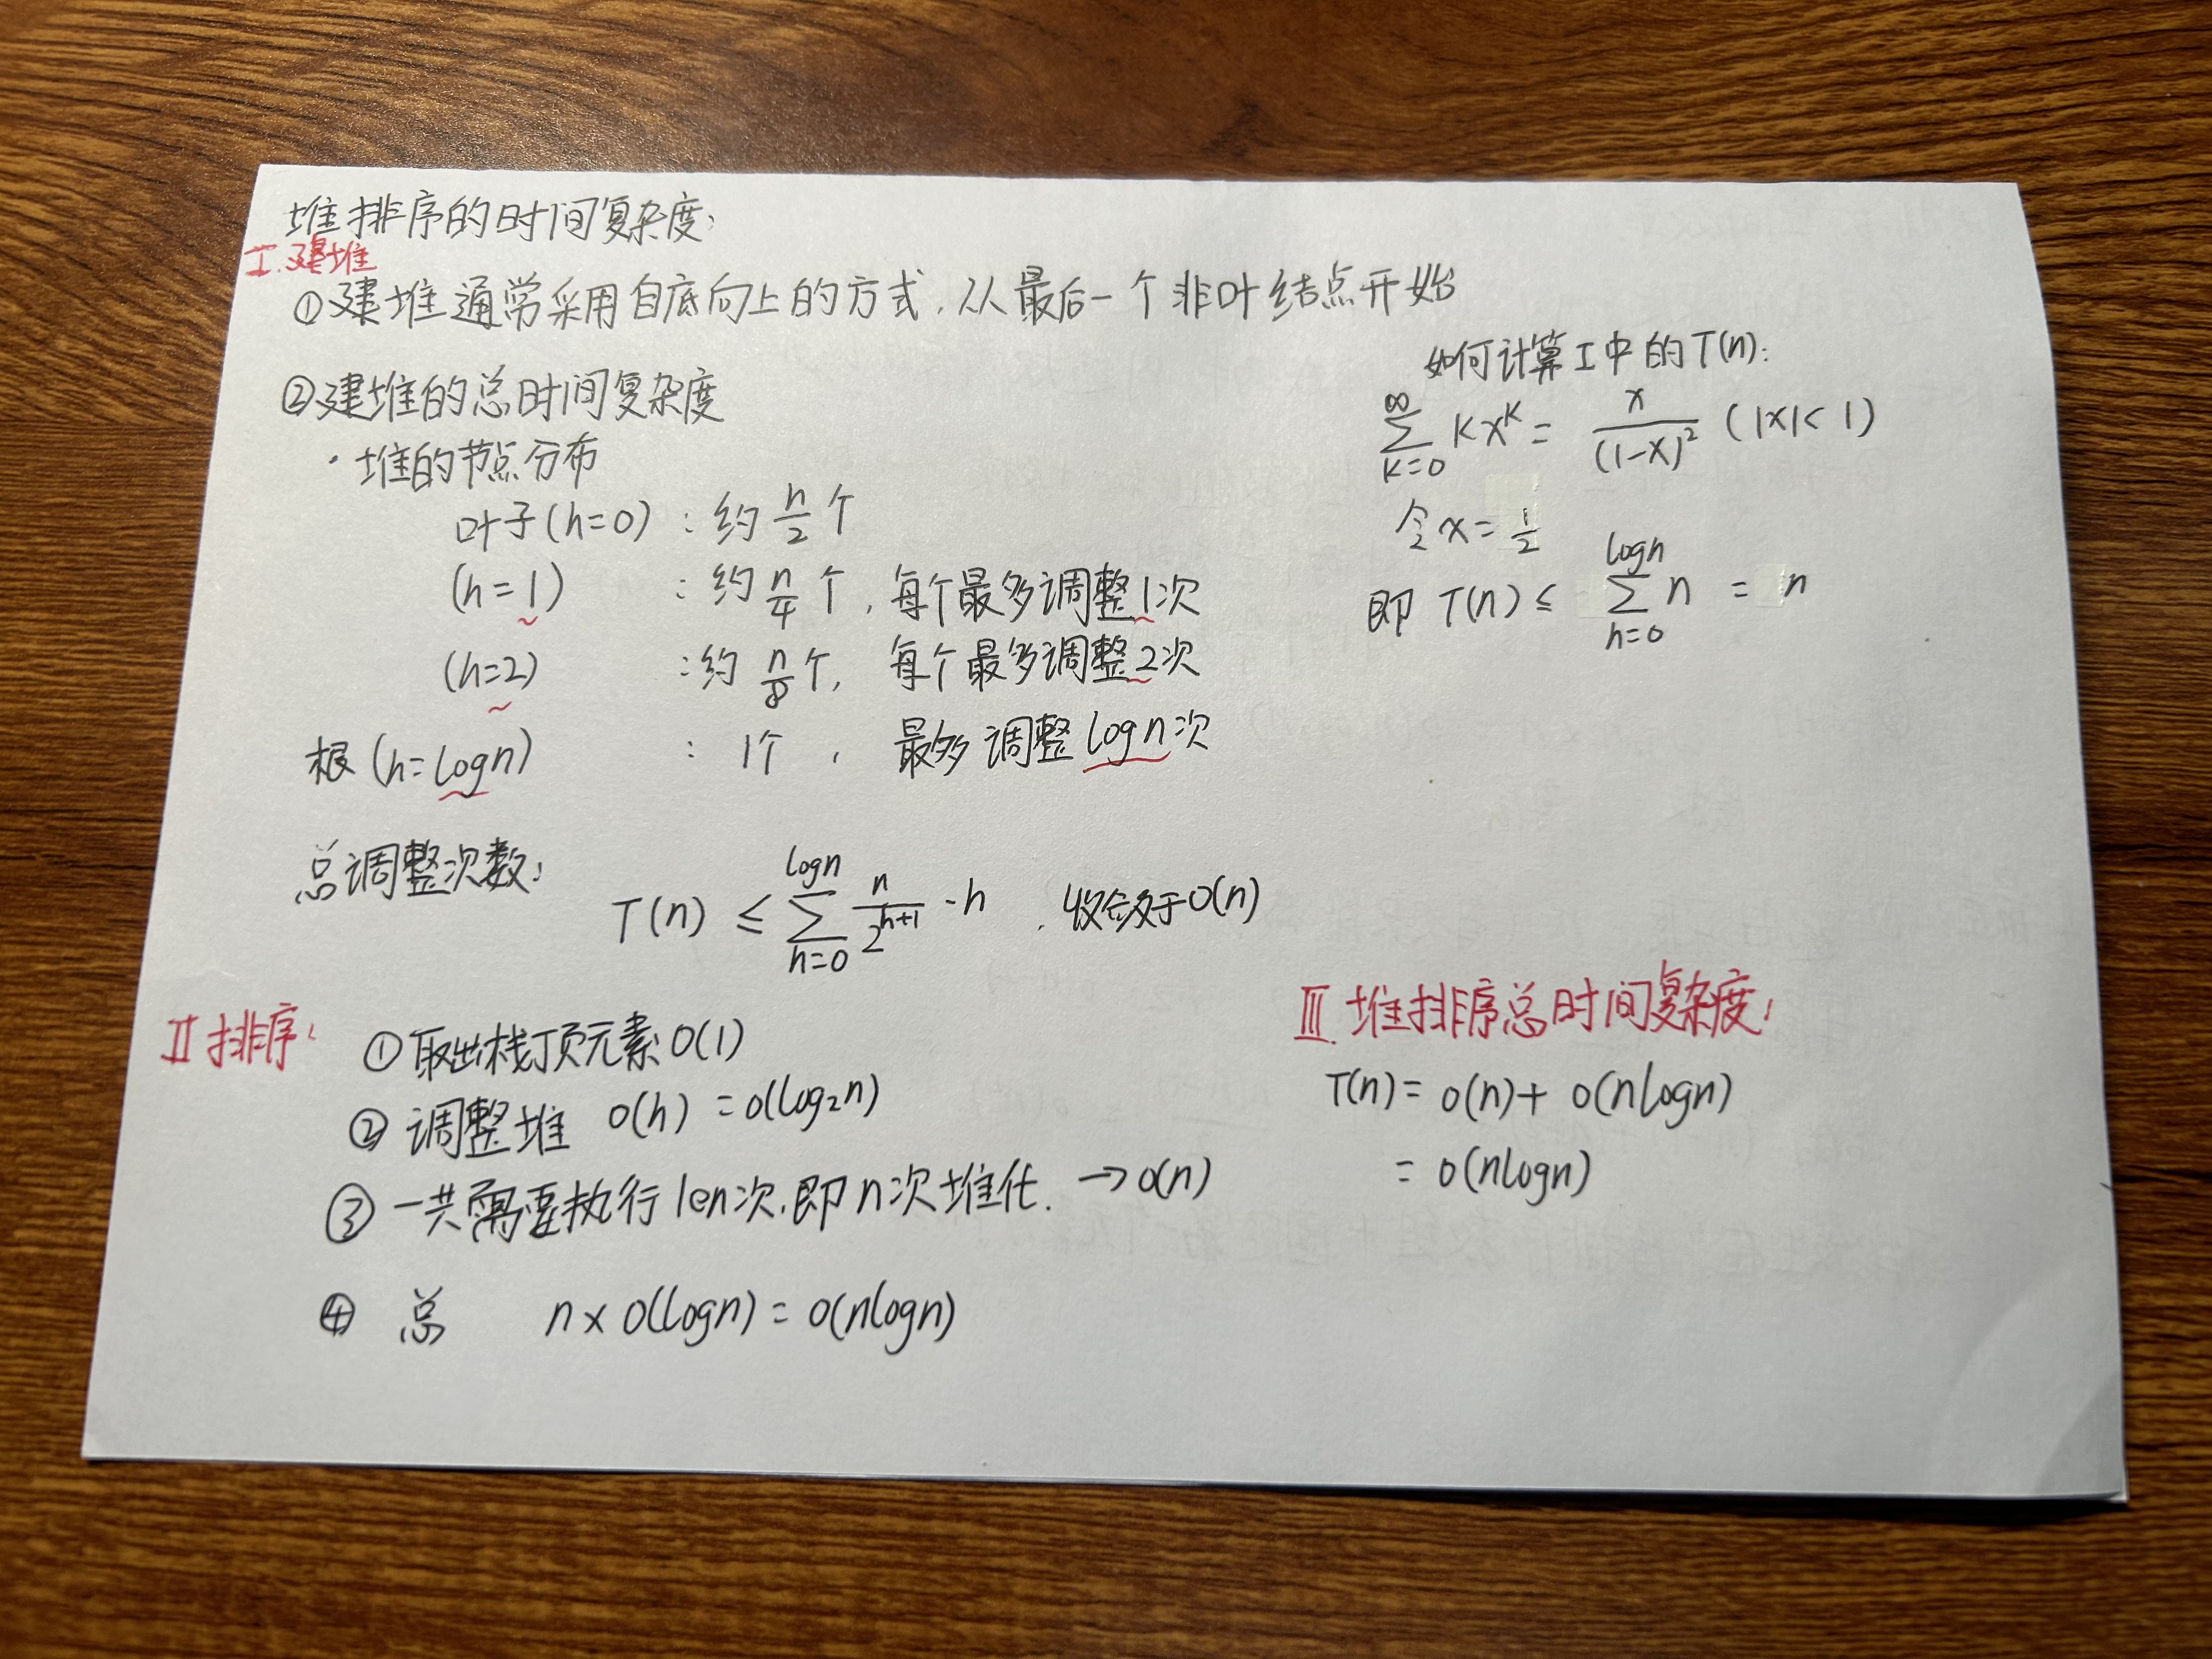 堆排序的时间复杂度:
I. 建堆
①建堆通常采用自底向上的方式,从最后一个非叶结点开始
②建堆的总时间复杂度
·堆的节点分布
叶子(h=0) : 约 n/2 个
(h=1) : 约 n/4 个, 每个最多调整1次
(h=2) : 约 n/8 个, 每个最多调整2次
根(h=logn) : 1个, 最多调整logn次
总调整次数:
T(n) ≤ ∑_{h=0}^{logn} n/2^{h+1} · h , 收敛于O(n)
如何计算I中的T(n):
∑_{k=0}^{∞} kx^k = x/(1-x)^2 (|x|<1)
令x=1/2
即 T(n) ≤ ∑_{h=0}^{logn} n = n
II 排序:
①取出栈顶元素O(1)
②调整堆 O(h) = O(log₂n)
③一共需要执行len次,即n次堆化. →O(n)
④ 总 n×O(logn) = O(nlogn)
III. 堆排序总时间复杂度:
T(n) = O(n) + O(nlogn)
= O(nlogn)